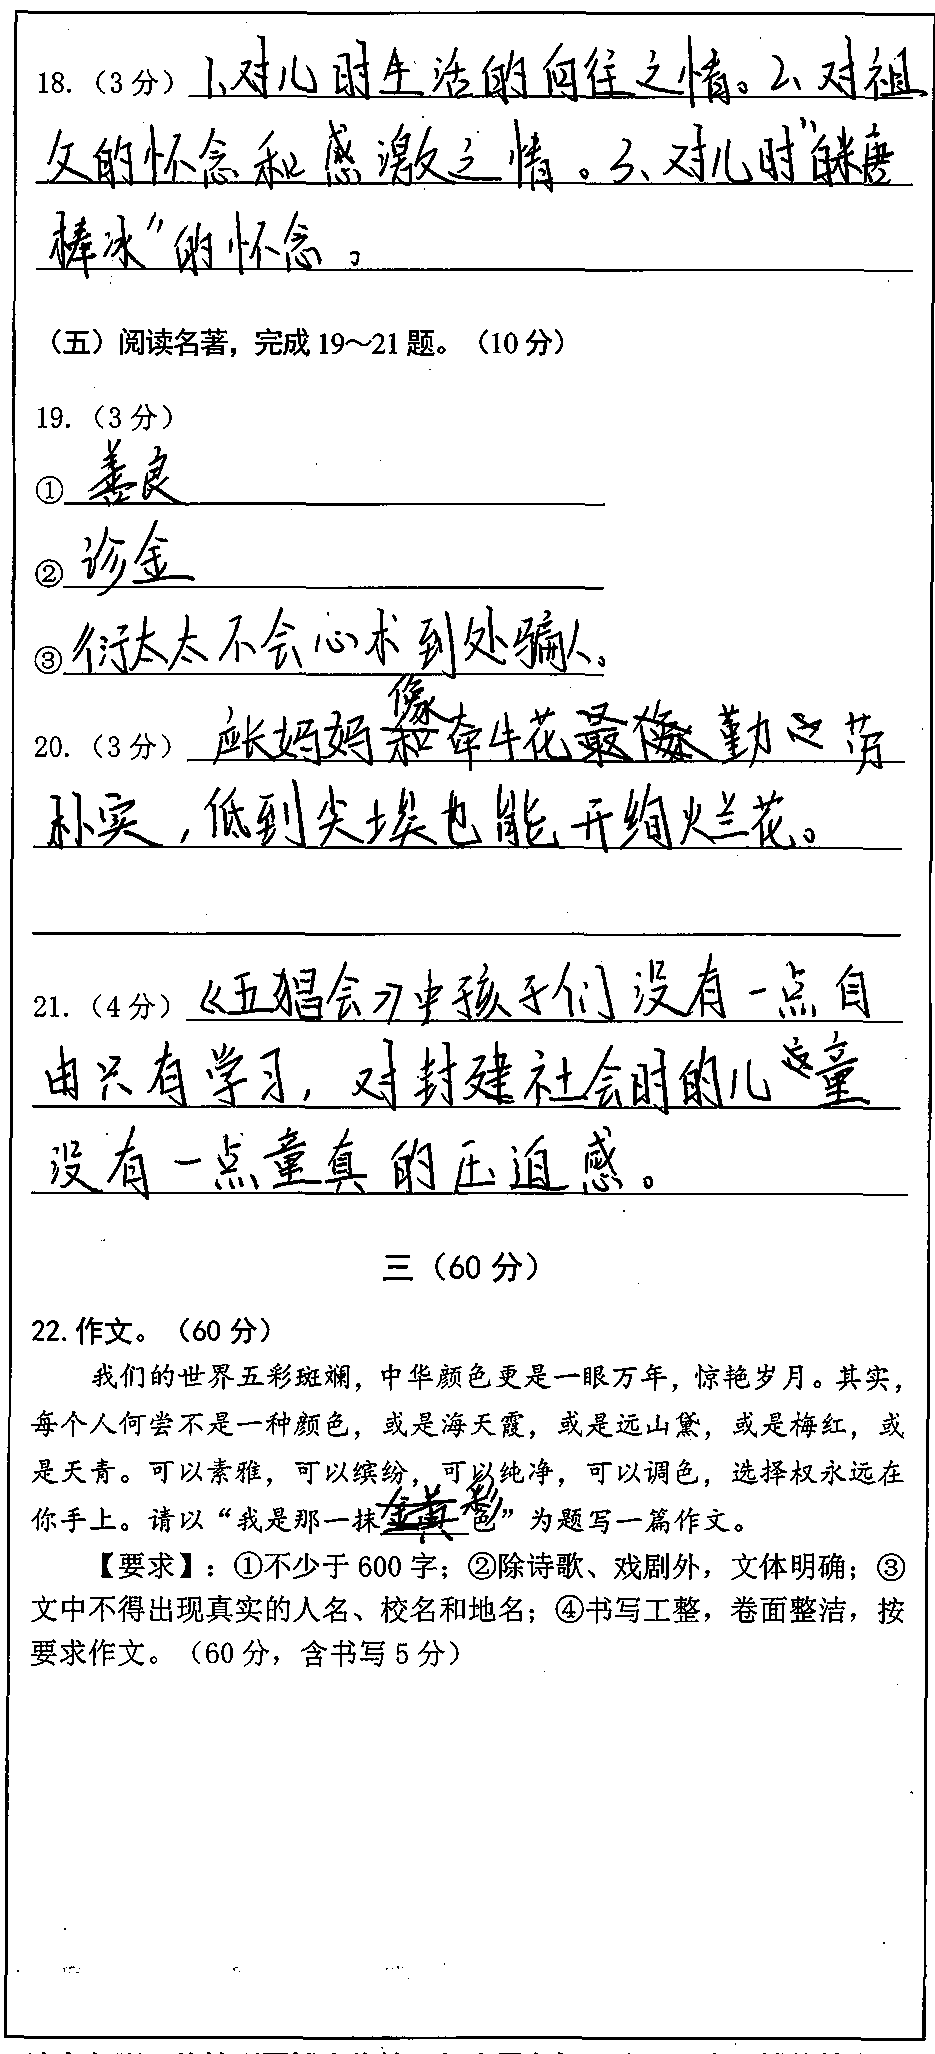 18.（3分）1、对儿时生活的向往之情。2、对祖
父的怀念和感激之情。3、对儿时"白糖
棒冰"的怀念。
（五）阅读名著，完成19～21题。（10分）
19.（3分）
①善良
②诊金
③衍太太不会心术到处骗人。
像
20.（3分）长妈妈牵牛花勤劳
朴实，低到尘埃也能开绚烂花。
21.（4分）《五猖会》中孩子们没有一点自
由只有学习，对封建社会时的儿童
没有一点童真的压迫感。
三（60分）
22.作文。（60分）
我们的世界五彩斑斓，中华颜色更是一眼万年，惊艳岁月。其实，
每个人何尝不是一种颜色，或是海天霞，或是远山黛，或是梅红，或
是天青。可以素雅，可以缤纷，可以纯净，可以调色，选择权永远在
彩
你手上。请以“我是那一抹金黄色”为题写一篇作文。
【要求】：①不少于600字；②除诗歌、戏剧外，文体明确；③
文中不得出现真实的人名、校名和地名；④书写工整，卷面整洁，按
要求作文。（60分，含书写5分）